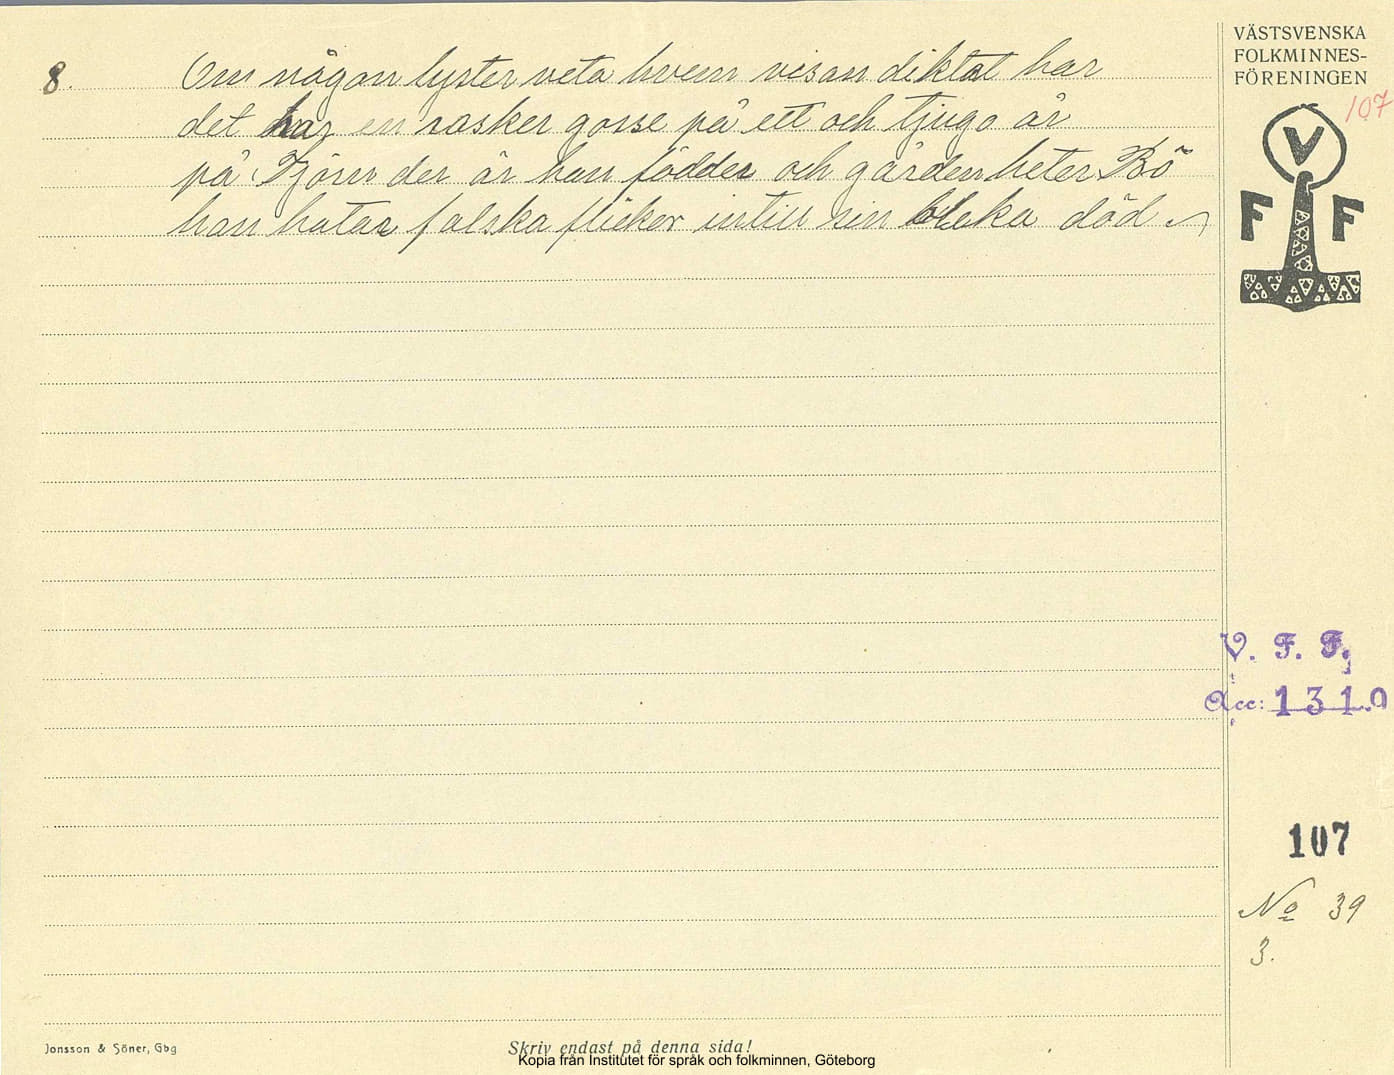 VÄSTSVENSKA
FOLKMINNES-
FÖRENINGEN
107
V
F F
8. Om någon lyster veta hvem visan diktat har
det har en rasker gosse på ett och tjugo år
på Tjörn der är han födder och gården heter Bö
han hatar falska flickor intill sin bleka död
V. F. F.
Acc: 1310
107
No 39
3.
Jonsson & Söner, Gbg
Skriv endast på denna sida!
Kopia från Institutet för språk och folkminnen, Göteborg